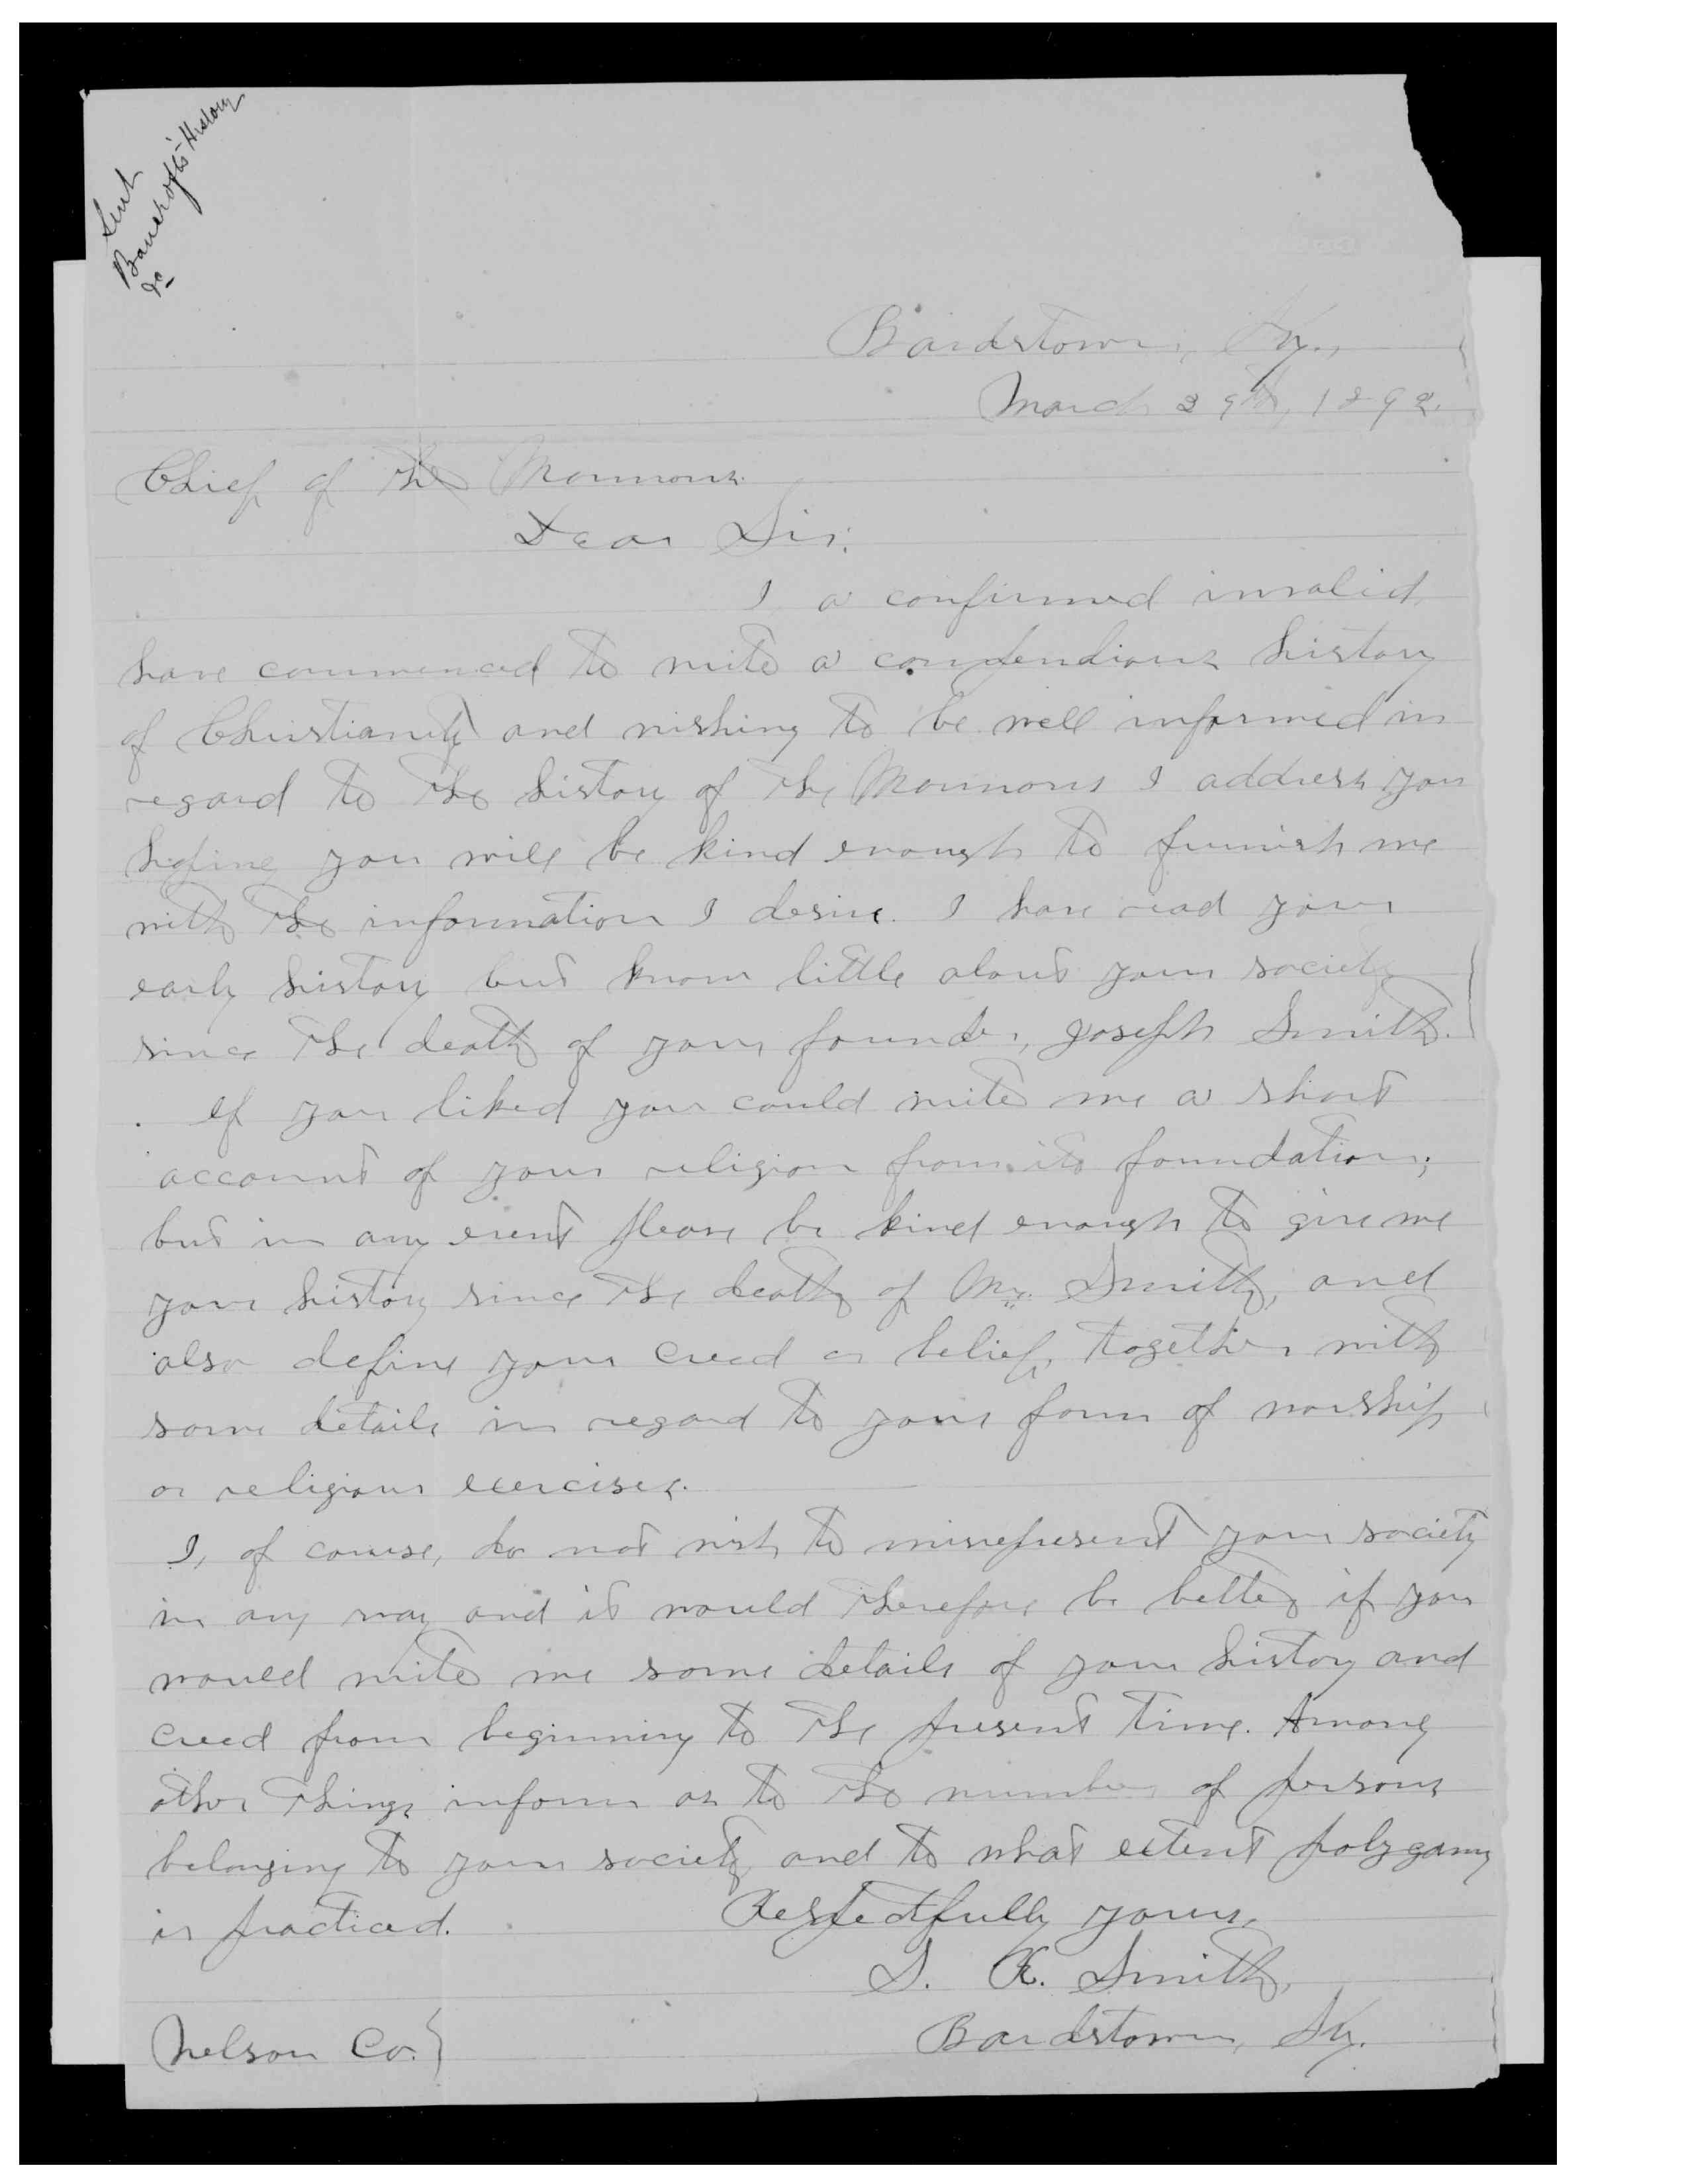 Sent
Bancroft's History
Bardstown, Ky.,
March 29th, 1892.
Chief of the Mormons.
Dear Sir:
I a confirmed invalid
have commenced to write a compendious history
of Christianity and wishing to be well informed in
regard to the history of the Mormons I address you
hoping you will be kind enough to furnish me
with the information I desire. I have read your
early history but know little about your society
since the death of your founder, Joseph Smith.
If you liked you could write me a short
account of your religion from its foundation;
but in any event please be kind enough to give me
your history since the death of Mr. Smith, and
also define your creed or belief, together with
some details in regard to your form of worship
or religious exercises.
I, of course, do not wish to misrepresent your society
in any way and it would therefore be better if you
would write me some details of your history and
creed from beginning to the present time. Among
other things inform as to the number of persons
belonging to your society and to what extent polygamy
is practiced.
Respectfully yours,
S. R. Smith,
Bardstown, Ky.
Nelson Co.}